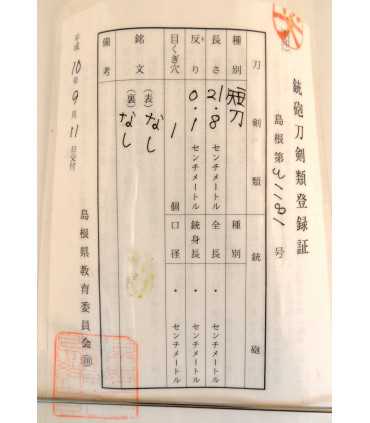 銃砲刀剣類登録証
島根第31181号
刀剣類
種別 短刀
長さ 21.8 センチメートル
反り 0.1 センチメートル
目くぎ穴 1 個
銘文 (表) なし
(裏) なし
備考
銃砲
種別
全長 . センチメートル
銃身長 . センチメートル
口径 . センチメートル
平成10年9月11日交付
島根県教育委員会 印